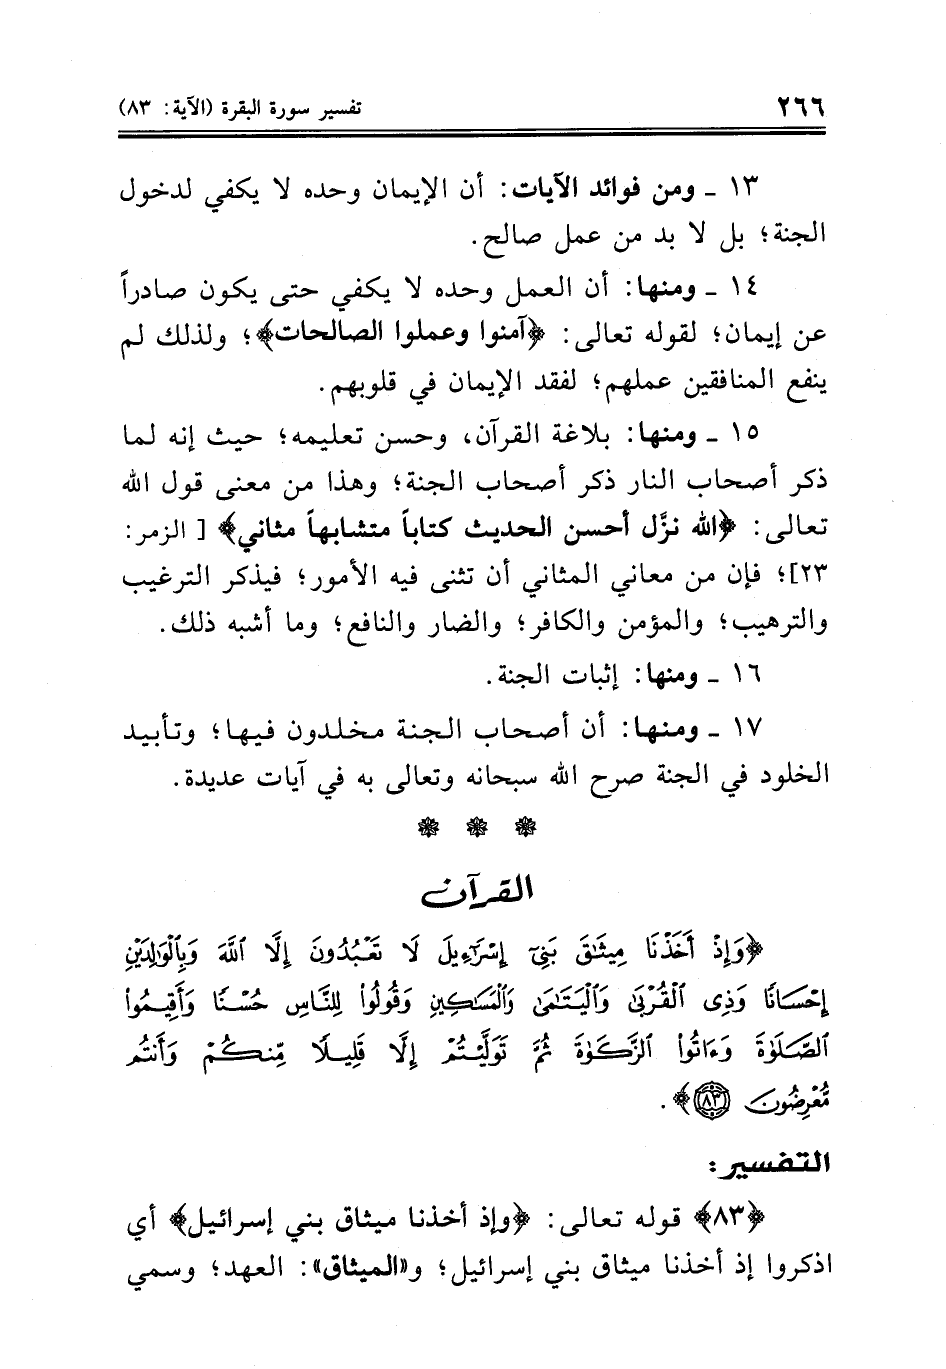 ٢٦٦ تفسير سورة البقرة (الآية: ٨٣)
١٣ ـ ومن فوائد الآيات: أن الإيمان وحده لا يكفي لدخول
الجنة؛ بل لا بد من عمل صالح.
١٤ ـ ومنها: أن العمل وحده لا يكفي حتى يكون صادراً
عن إيمان؛ لقوله تعالى: ﴿آمنوا وعملوا الصالحات﴾؛ ولذلك لم
ينفع المنافقين عملهم؛ لفقد الإيمان في قلوبهم.
١٥ ـ ومنها: بلاغة القرآن، وحسن تعليمه؛ حيث إنه لما
ذكر أصحاب النار ذكر أصحاب الجنة؛ وهذا من معنى قول الله
تعالى: ﴿الله نزَّل أحسن الحديث كتاباً متشابهاً مثاني﴾ [ الزمر:
٢٣]؛ فإن من معاني المثاني أن تثنى فيه الأمور؛ فيذكر الترغيب
والترهيب؛ والمؤمن والكافر؛ والضار والنافع؛ وما أشبه ذلك.
١٦ ـ ومنها: إثبات الجنة.
١٧ ـ ومنها: أن أصحاب الجنة مخلدون فيها؛ وتأبيد
الخلود في الجنة صرح الله سبحانه وتعالى به في آيات عديدة.
القرآن
﴿وَإِذْ أَخَذْنَا مِيثَٰقَ بَنِىٓ إِسْرَٰٓءِيلَ لَا تَعْبُدُونَ إِلَّا ٱللَّهَ وَبِٱلْوَٰلِدَيْنِ
إِحْسَانًا وَذِى ٱلْقُرْبَىٰ وَٱلْيَتَٰمَىٰ وَٱلْمَسَٰكِينِ وَقُولُوا۟ لِلنَّاسِ حُسْنًا وَأَقِيمُوا۟
ٱلصَّلَوٰةَ وَءَاتُوا۟ ٱلزَّكَوٰةَ ثُمَّ تَوَلَّيْتُمْ إِلَّا قَلِيلًا مِّنكُمْ وَأَنتُم
مُّعْرِضُونَ ٨٣﴾.
التفسير:
﴿٨٣﴾ قوله تعالى: ﴿وإذ أخذنا ميثاق بني إسرائيل﴾ أي
اذكروا إذ أخذنا ميثاق بني إسرائيل؛ و«الميثاق»: العهد؛ وسمي